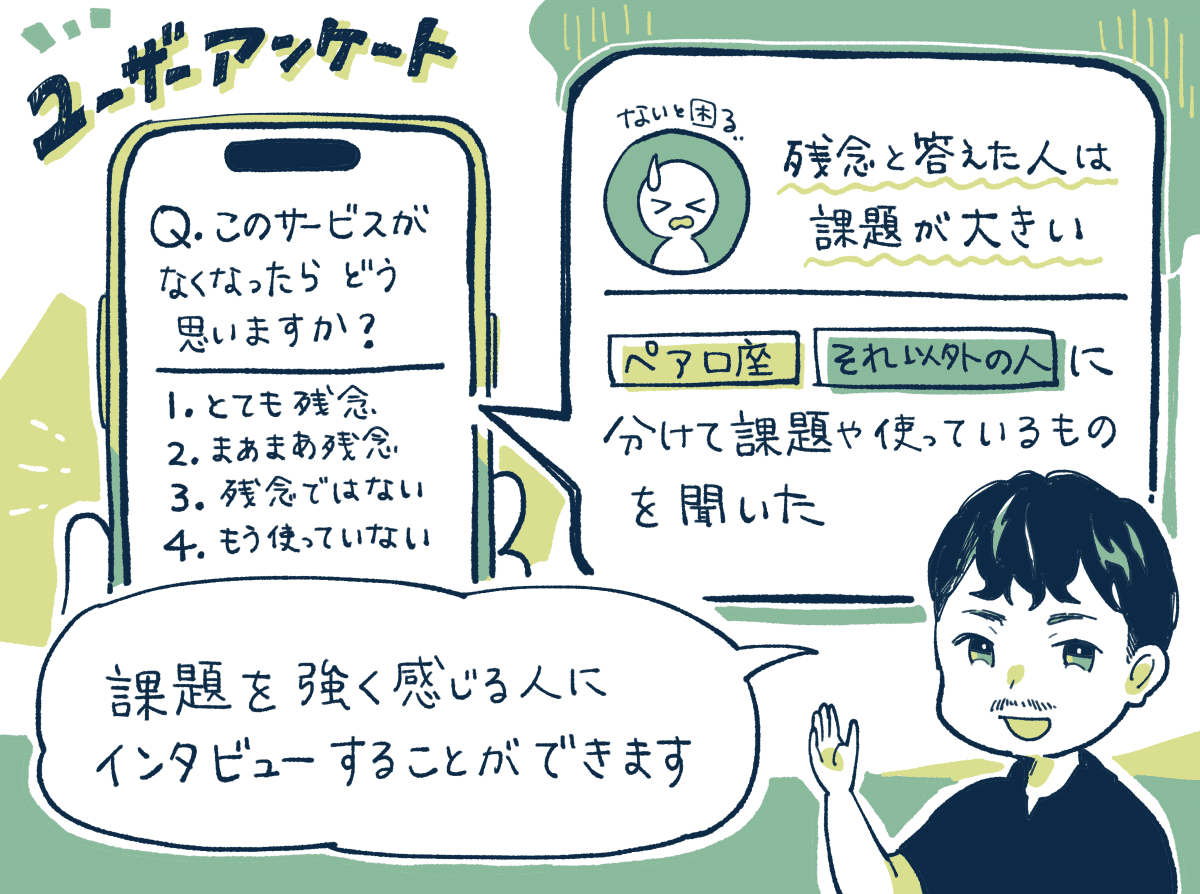 ユーザーアンケート
Q.このサービスが
なくなったら どう
思いますか?
1.とても残念
2.まぁまぁ残念
3.残念ではない
4.もう使っていない
ないと困る
残念と答えた人は
課題が大きい
ペア口座 それ以外の人 に
分けて課題や使っているもの
を聞いた
課題を強く感じる人に
インタビューすることができます